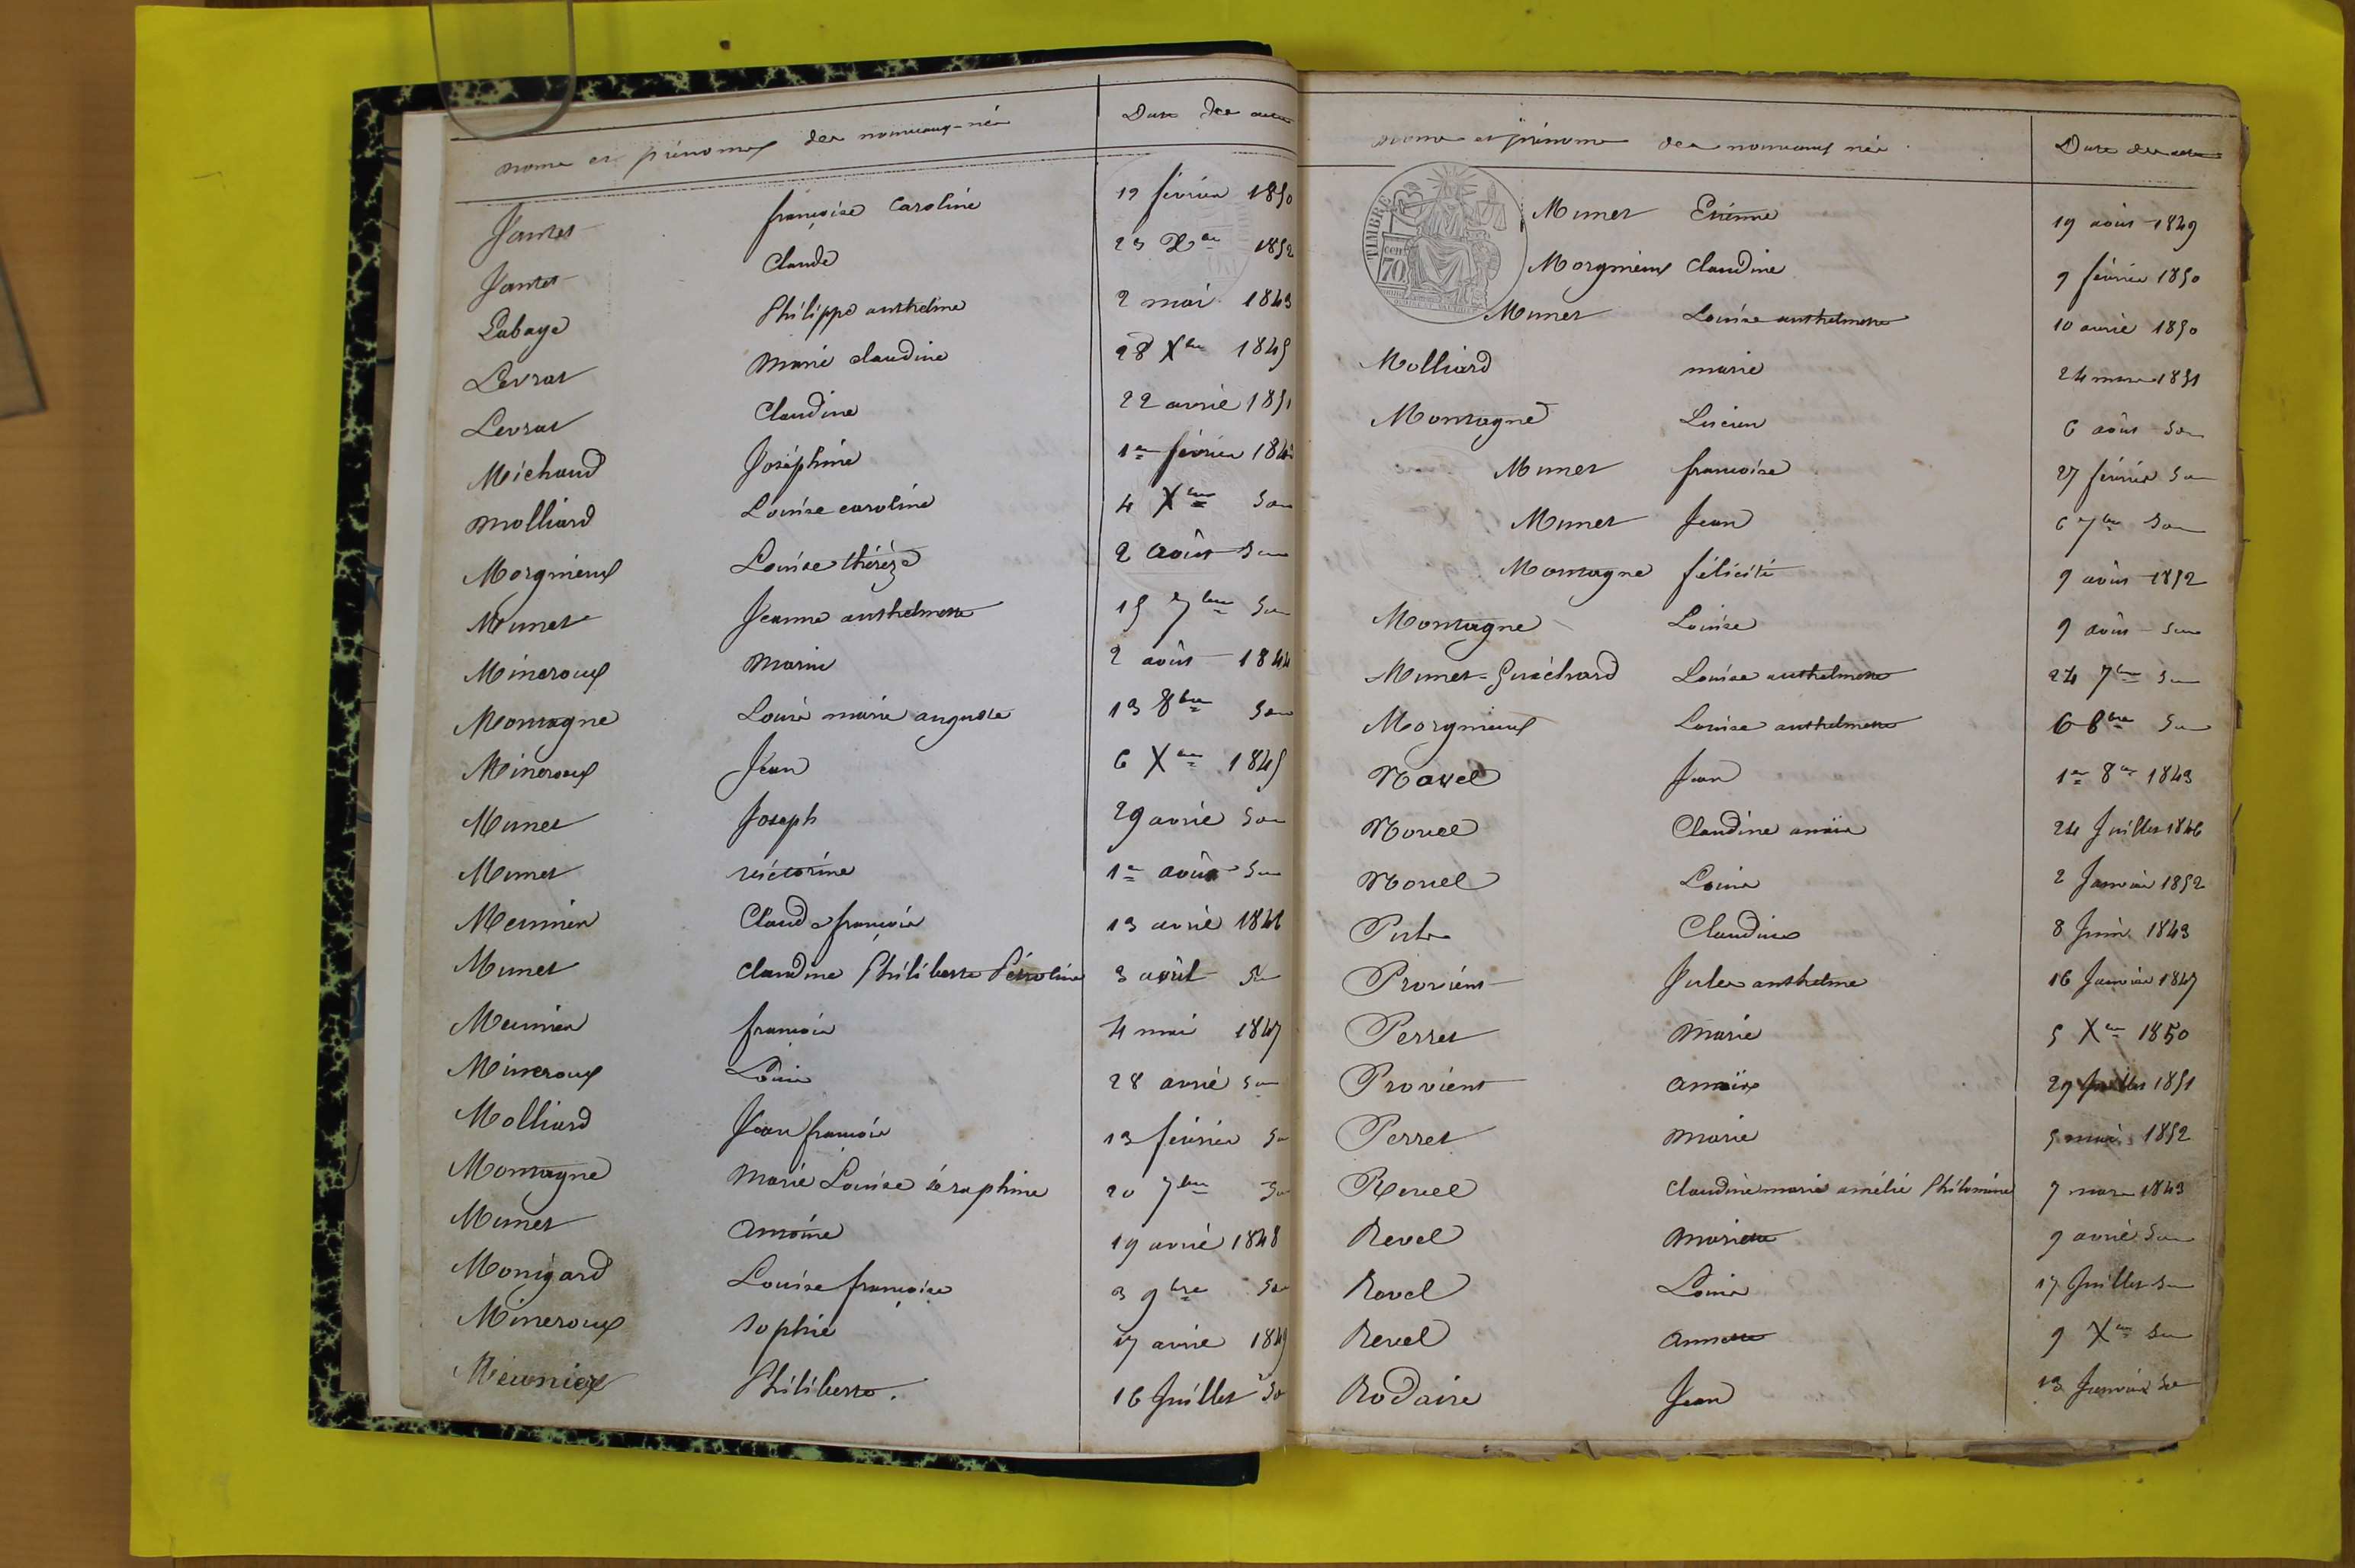 noms et prénoms des nouveaux-nés Date des actes
Jantet françoise Caroline 12 février 1850
Jantet Claude 23 Xbre 1852
Labaye Philippe anthelme 2 mai 1843
Levrat Marie claudine 28 Xbre 1845
Levrat Claudine 22 avril 1851
Michaud Joséphine 1er février 1843
Molliard Louise caroline 4 Xbre Son
Morgnieux Louise thérèze 2 août Son
Munet Jeanne anthelmette 15 7bre Son
Mineroux Marie 2 août 1844
Montagne Louis marie auguste 13 8bre Son
Mineroux Jean 6 Xbre 1845
Munet Joseph 29 avril Son
Munet victorine 1er août Son
Meunier Claude françois 13 avril 1846
Munet Claudine Philiberte Pétroline 3 août Son
Meunier françois 4 mai 1847
Mineroux Louis 28 avril Son
Molliard Jean françois 13 février Son
Montagne Marie Louise séraphine 20 7bre Son
Munet antoine 19 avril 1848
Monigard Louise françoise 3 9bre Son
Mineroux Sophie 17 avril 1849
Meunier Philiberte. 16 Juillet Son
noms et prénoms des nouveaux nés Date des actes
TIMBRE
70
Munet Etienne 19 août 1849
Morgnieux Claudine 9 février 1850
Munet Louise anthelmette 10 avril 1850
Molliard marie 24 mars 1851
Montagne Lucien 6 août Son
Munet françoise 27 février Son
Munet Jean 6 7bre Son
Montagne félicité 9 août 1852
Montagne Louise 9 août Son
Munet-Guichard Louise anthelmette 24 7bre Son
Morgnieux Louise anthelmette 6 8bre Son
Jean 1er 8bre 1843
Novel Claudine anaïs 24 Juillet 1846
Novel Louise 2 Janvier 1852
Claudine 8 Juin 1843
Provient Jules anthelme 16 Janvier 1847
Perret Marie 5 Xbre 1850
Provient anaïs 29 Juillet 1851
Perret Marie 5 mai 1852
Revel Claudine marie amélie Philomène 7 mars 1843
Revel Mariette 9 avril Son
Revel Louis 17 Juillet Son
Revel Annette 9 Xbre Son
Rodaire Jean 13 Janvier Son